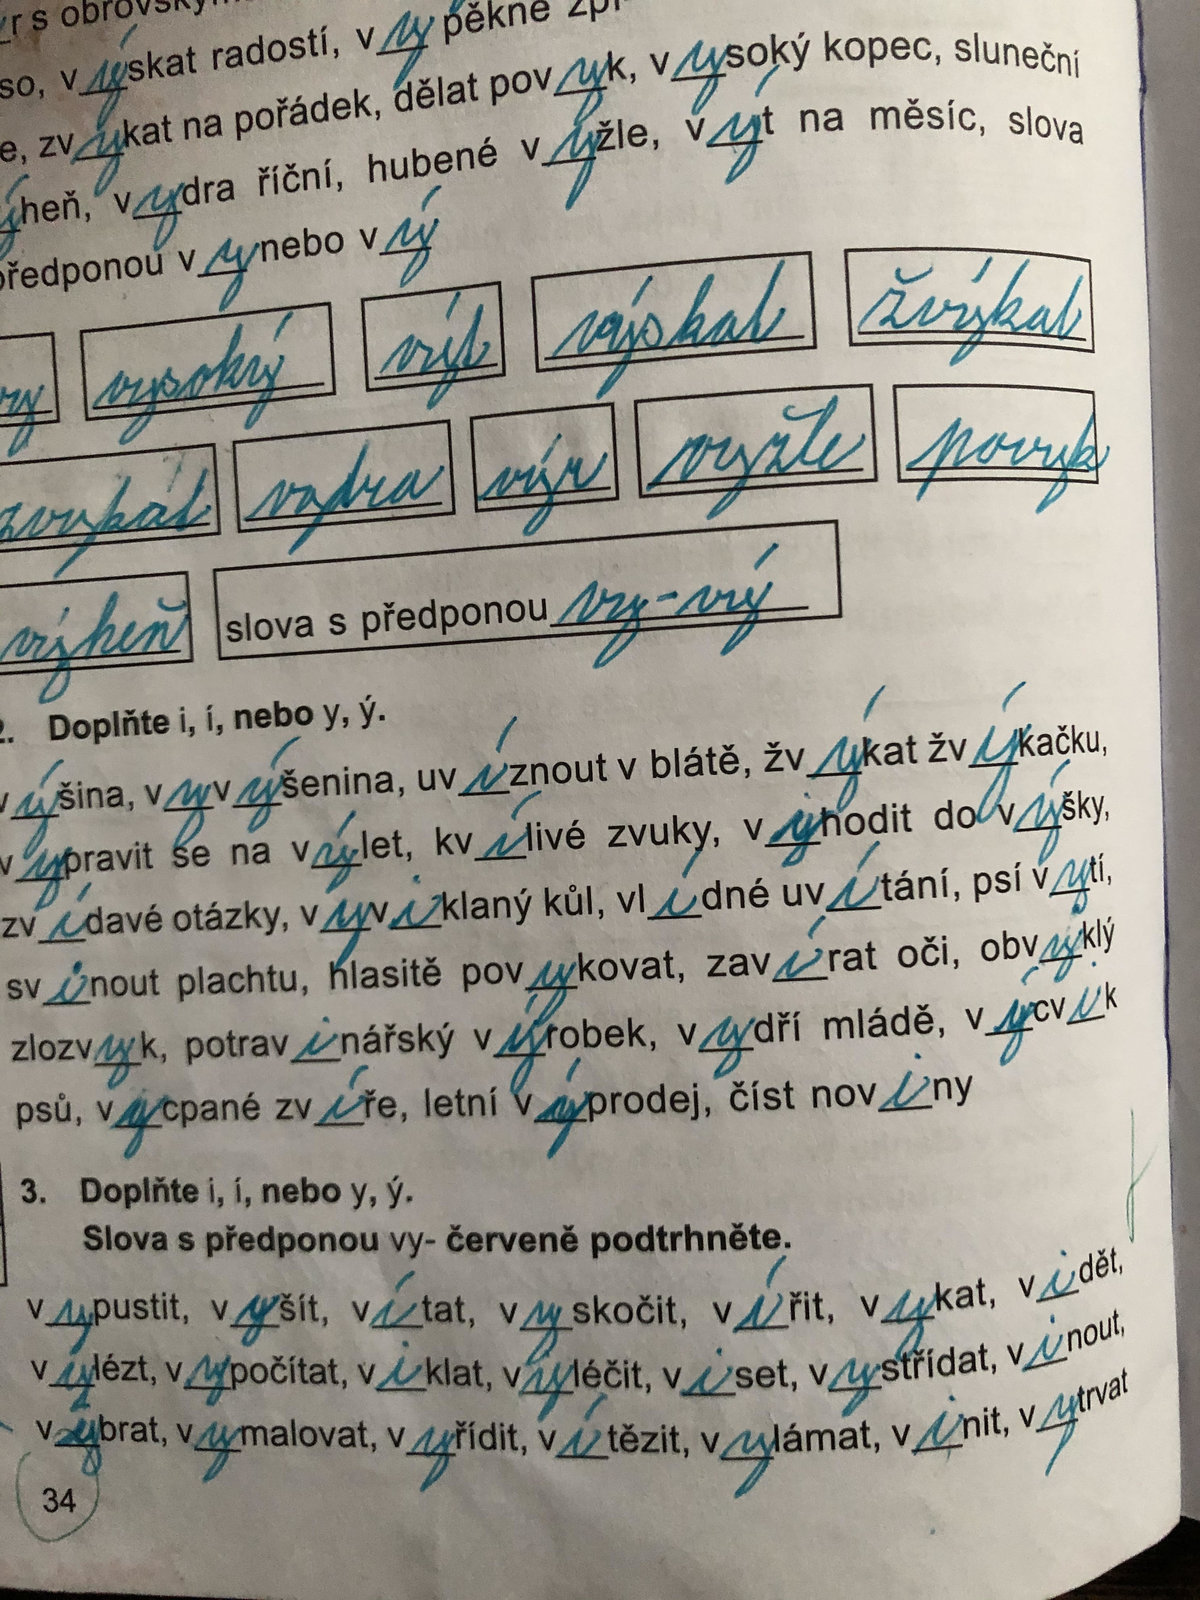 r s obrovským
so, výskat radostí, vy pěkně
e, zvykat na pořádek, dělat povyk, vysoký kopec, sluneční
ýheň, vydra říční, hubené vyžle, výt na měsíc, slova
předponou vy nebo vý
ry vysoký výl výskal žvýkal
zvykal vydra výr vyžle povyk
výheň slova s předponou vy-vý
2. Doplňte i, í, nebo y, ý.
výšina, vyvýšenina, uvíznout v blátě, žvýkat žvýkačku,
vypravit se na výlet, kvílivé zvuky, vyhodit do výšky,
zvídavé otázky, vyviklaný kůl, vlidné uvítání, psí vytí,
svinout plachtu, hlasitě povykovat, zavírat oči, obvyklý
zlozvyk, potravinářský výrobek, vydří mládě, výcvik
psů, vycpané zvíře, letní výprodej, číst noviny
3. Doplňte i, í, nebo y, ý.
Slova s předponou vy- červeně podtrhněte.
vypustit, vyšít, vítat, vyskočit, vířit, vykat, vidět,
vylézt, vypočítat, viklat, vyléčit, viset, vystřídat, vinout,
vybrat, vymalovat, vyřídit, vítězit, vylámat, vinit, vytrvat
34